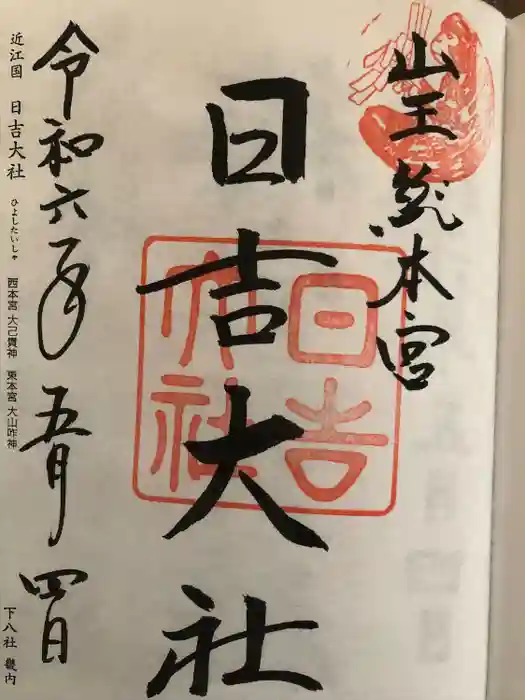 山王総本宮
日吉大社
日吉
大社
令和六年五月四日
近江国 日吉大社 ひよしたいしゃ 西本宮 大己貴神 東本宮 大山咋神
下八社 畿内